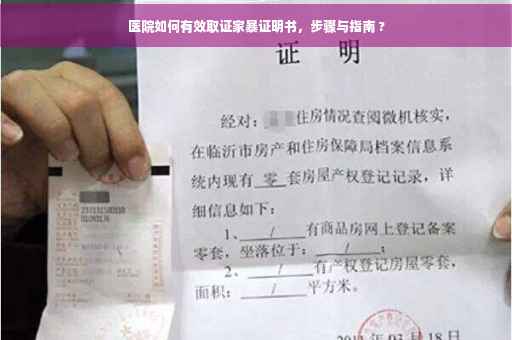 医院如何有效取证家暴证明书，步骤与指南？
证 明
经对：住房情况查阅微机核实，
在临沂市房产和住房保障局档案信息系
统内现有 零 套房屋产权登记记录，详
细信息如下：
1、 / 有商品房网上登记备案
零套，坐落位于： / ；
2、 / 有产权登记房屋零套，
面积： / 平方米。